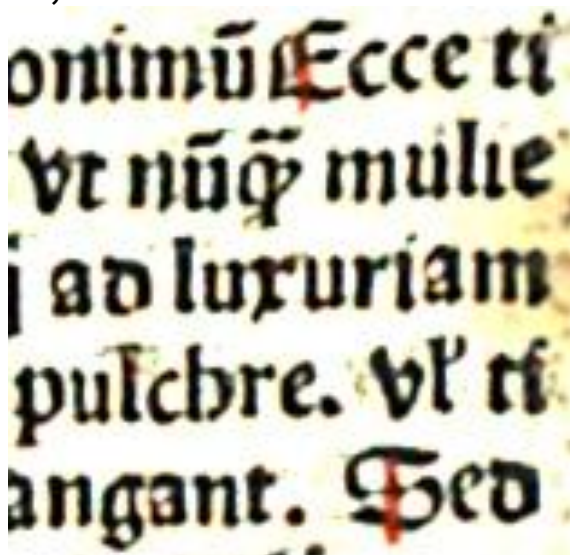 onimū Ecce ti
vt nūq̃ mulie
ad luxuriam
pulchre. vl̛ tſ
angant. Sed